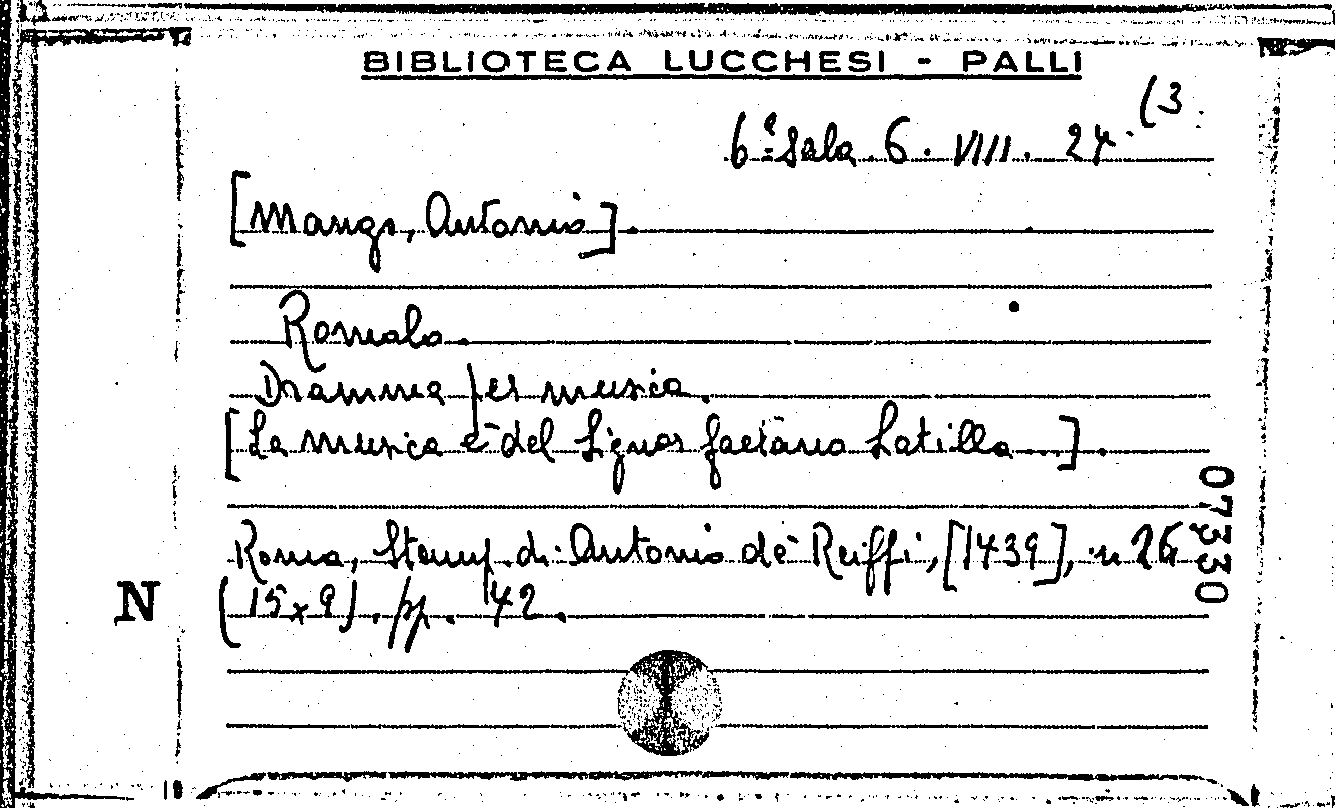 BIBLIOTECA LUCCHESI - PALLI
6ª Sala. 6. VIII. 24. (3.
[Mango, Antonio].
Romolo.
Dramma per musica.
[La musica è del Signor Gaetano Latilla...].
Roma, Stamp. di Antonio de' Rossi, [1739], in 24
(15x9). pp. 42.
07330
N